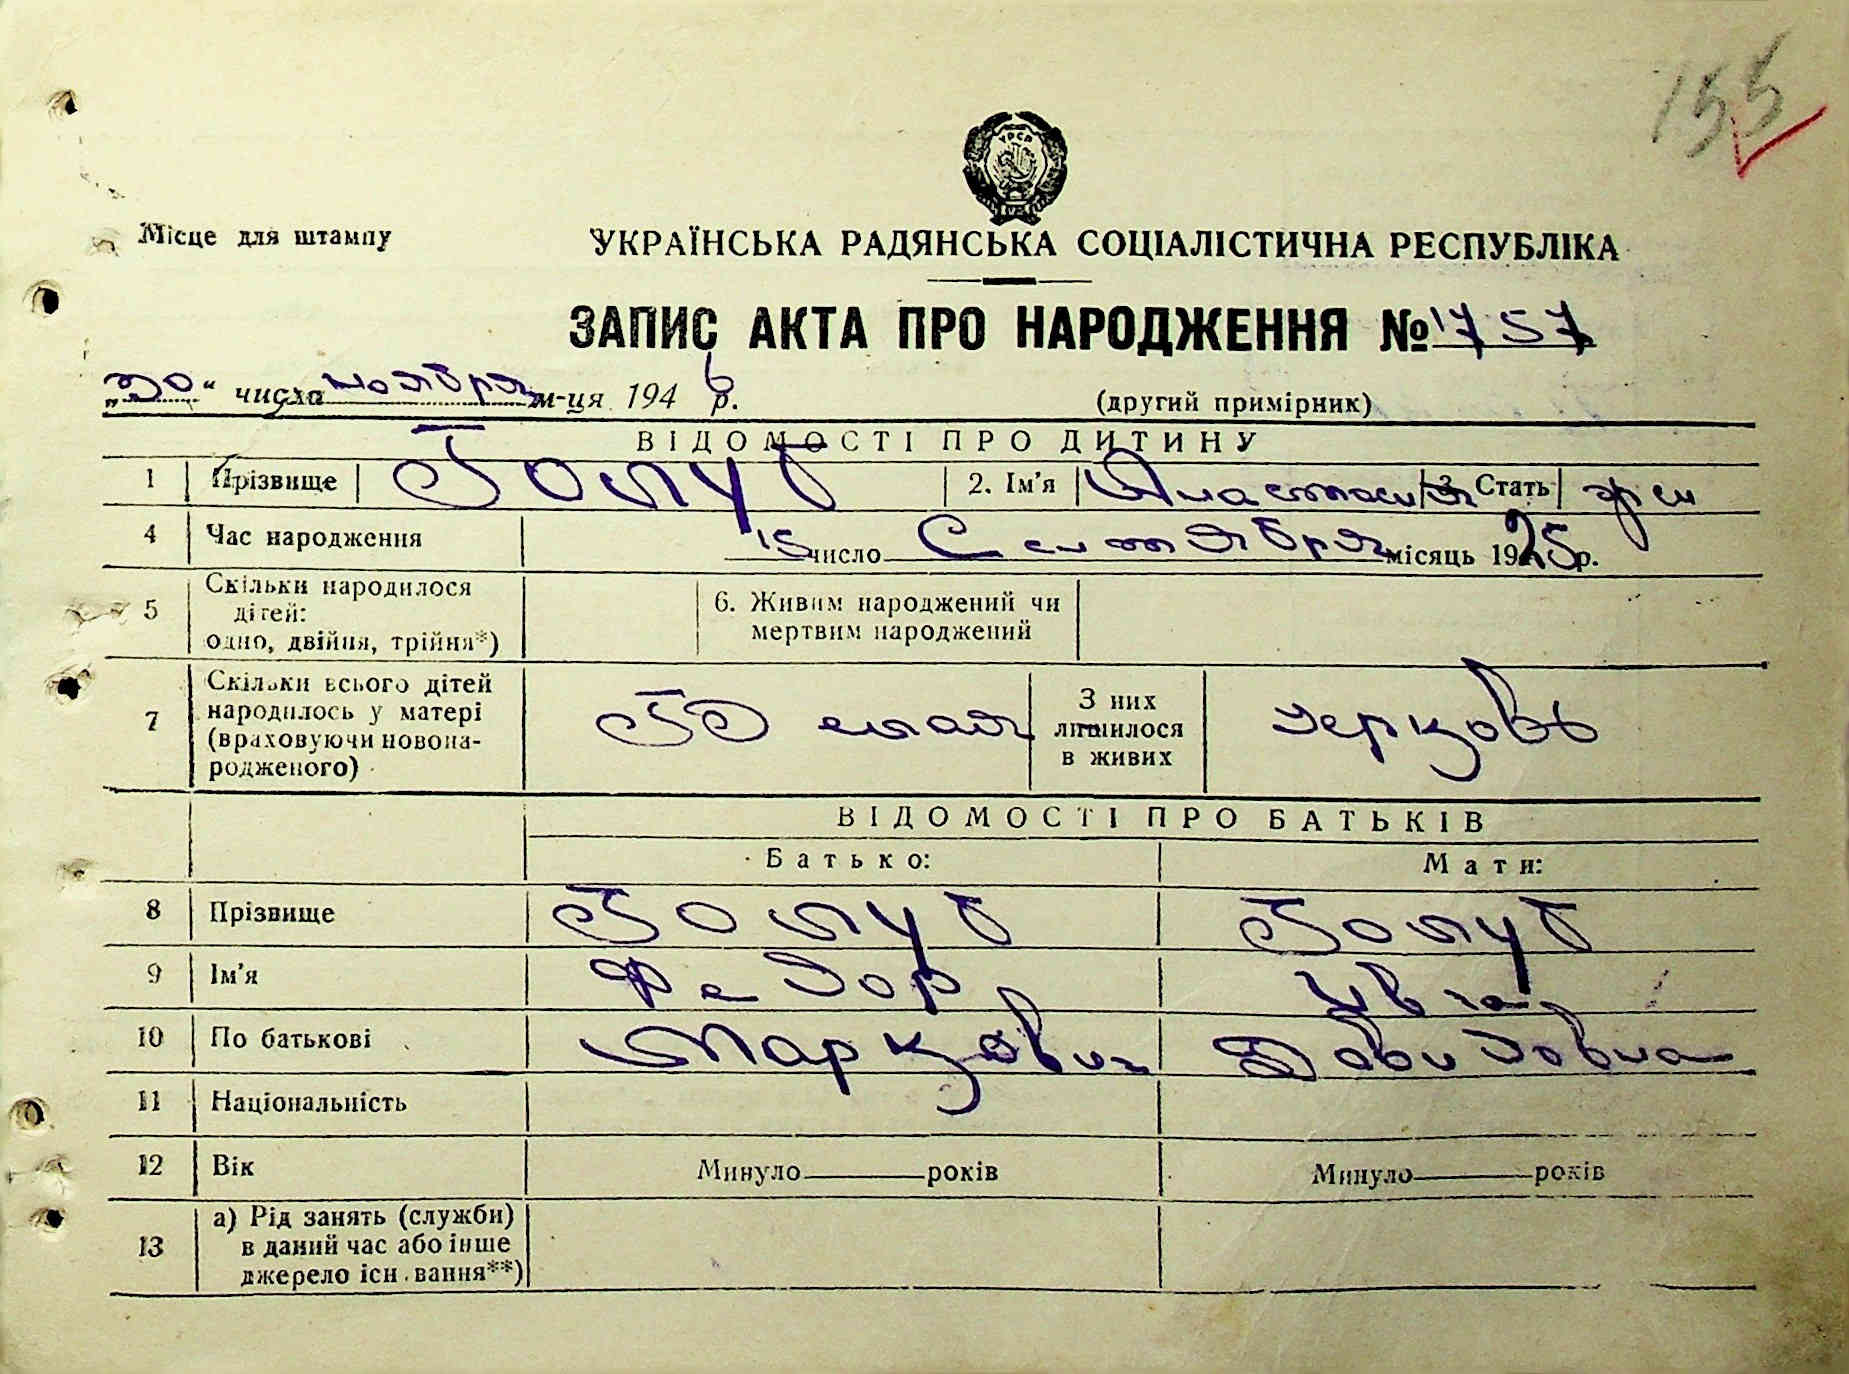 155
УРСР
Місце для штампу
УКРАЇНСЬКА РАДЯНСЬКА СОЦІАЛІСТИЧНА РЕСПУБЛІКА
ЗАПИС АКТА ПРО НАРОДЖЕННЯ № 757
„30“ числа ноября м-ця 1946 р.
(другий примірник)
ВІДОМОСТІ ПРО ДИТИНУ
1 Прізвище Голуб 2. Ім'я Анастасия 3 Стать жен
4 Час народження 15 число Сентября місяць 1925 р.
5 Скільки народилося дітей: одно, двійня, трійня*) 6. Живим народжений чи мертвим народжений
7 Скільки всього дітей народилось у матері (враховуючи новонародженого) З них лишилося в живих
ВІДОМОСТІ ПРО БАТЬКІВ
Батько: Мати:
8 Прізвище Голуб Голуб
9 Ім'я Федор
10 По батькові Маркович Давидовна
11 Національність
12 Вік Минуло років Минуло років
13 а) Рід занять (служби) в даний час або інше джерело існ вання**)